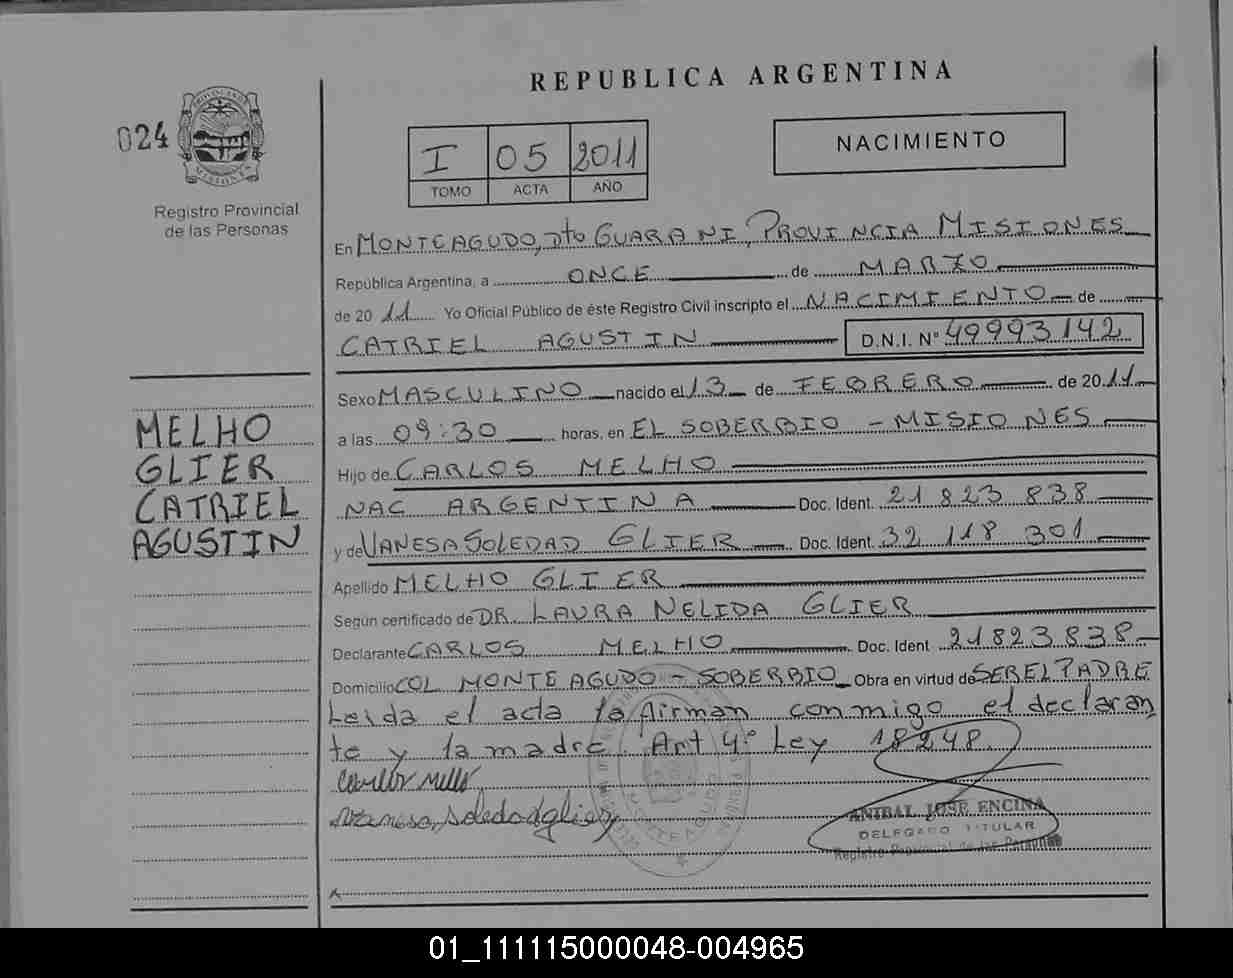 REPUBLICA ARGENTINA
024
Registro Provincial
de las Personas
I 05 2011
TOMO ACTA AÑO
NACIMIENTO
En MONTEAGUDO, Dto GUARANI, PROVINCIA MISIONES
República Argentina, a ONCE de MARZO
de 20 11 Yo Oficial Público de éste Registro Civil inscripto el NACIMIENTO de
CATRIEL AGUSTIN D.N.I. N° 49993142
Sexo MASCULINO nacido el 13 de FEBRERO de 20 11
a las 09:30 horas, en EL SOBERBIO - MISIONES
Hijo de CARLOS MELHO
NAC ARGENTINA Doc. Ident. 21 823 838
y de VANESA SOLEDAD GLIER Doc. Ident. 32 118 301
Apellido MELHO GLIER
Según certificado de DR. LAURA NELIDA GLIER
Declarante CARLOS MELHO Doc. Ident 21823838
Domicilio COL MONTE AGUDO - SOBERBIO Obra en virtud de SER EL PADRE
Leida el acta la firman conmigo el declaran
te y la madre Art 4° Ley 18248.
MELHO
GLIER
CATRIEL
AGUSTIN
Carlos Melho
Vanesa Soledad glier
ANIBAL JOSE ENCINA
DELEGADO TITULAR
Registro Provincial de las Personas
01_111115000048-004965